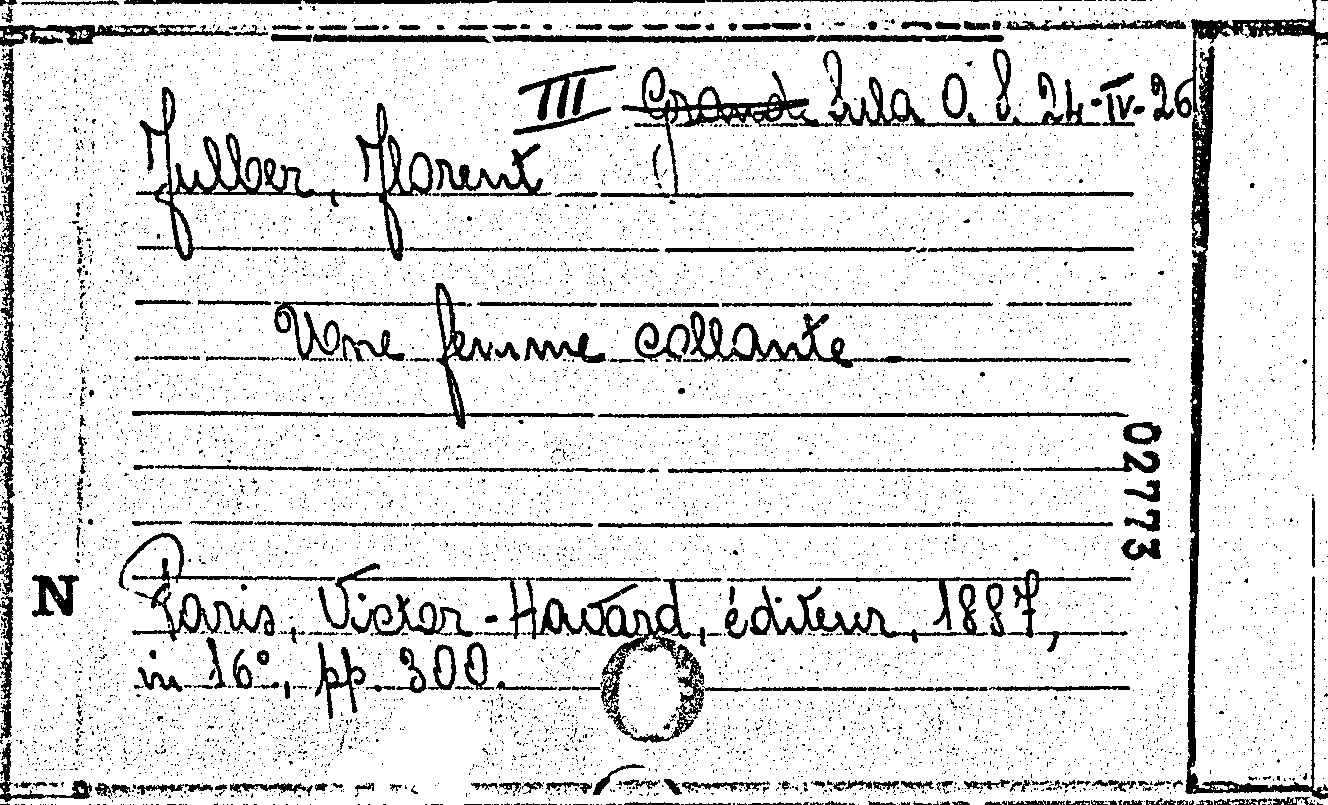 III Grand. Sala O. S. 24-IV-26
Fulber, Florent
Une femme collante
02773
N
Paris, Victor-Havard, éditeur, 1887,
in 16°, pp. 300.